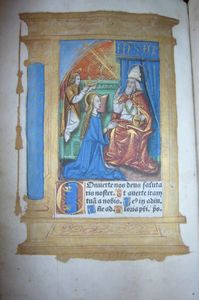 Onverte nos deus saluta
ris noster. Et averte iram
tuã a nobis. Deus in adiu
Gloria pr̃i.